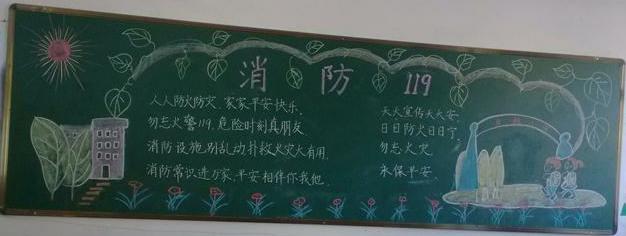 消 防 119
人人防火防灾,家家平安快乐.
勿忘火警119,危险时刻真朋友
消防设施别乱动扑救火灾大有用.
消防常识进万家,平安相伴你我他.
天天宣传天天安
日日防火日日宁
勿忘火灾
永保平安